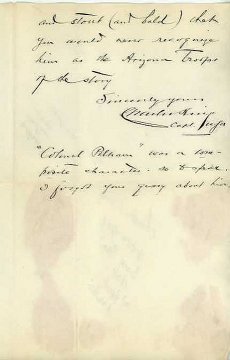 and stout (and bald) that
you would never recognize
him as the Arizona Troops
of the story
Sincerely yours
Charles King
Capt.
"Colonel Pelham" was a com-
posite character - so to speak.
I forgot your query about him